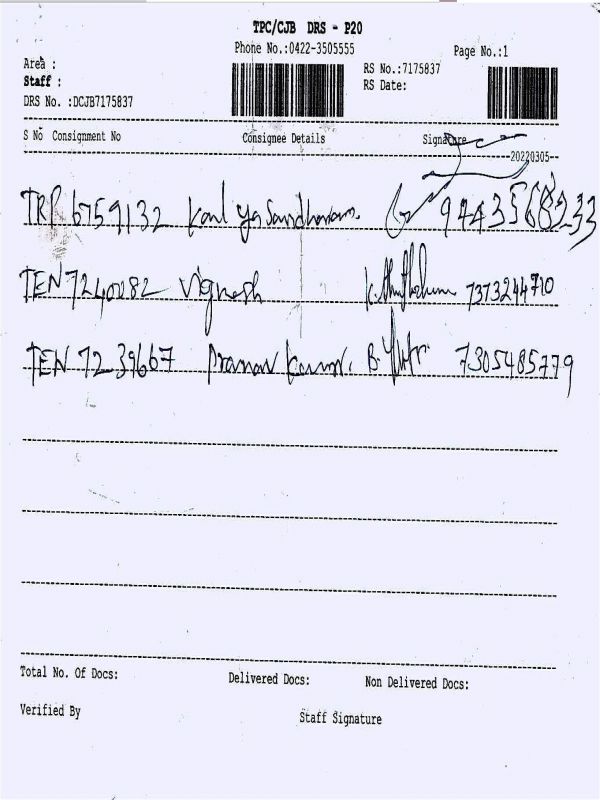 TPC/CJB DRS - P20
Phone No.:0422-3505555 Page No.:1
Area :
Staff :
DRS No. :DCJB7175837
RS No.:7175837
RS Date:
S No Consignment No Consignee Details Signature
20220305
TRP 6759132 9443568233
TEN 7240282 Vignesh 7373244710
TEN 7239667 Pranav Kumar. B. 7305485779
Total No. Of Docs: Delivered Docs: Non Delivered Docs:
Verified By Staff Signature